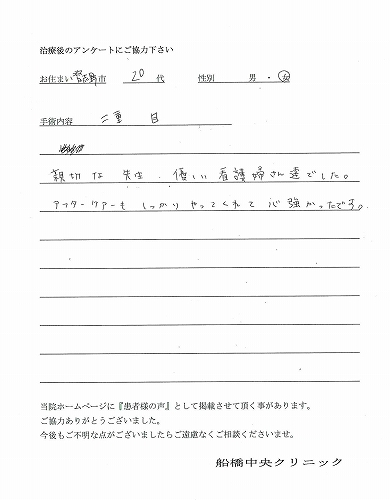 治療後のアンケートにご協力下さい
お住まい 習志野 市 20 代 性別 男 ・ 女
手術内容 二重 目
親切な 先生、優しい 看護婦さん達でした。
アフターケアーも しっかり やってくれて 心強かったです。
当院ホームページに『患者様の声』として掲載させて頂く事があります。
ご協力ありがとうございました。
今後もご不明な点がございましたらご遠慮なくご相談くださいませ。
船橋中央クリニック